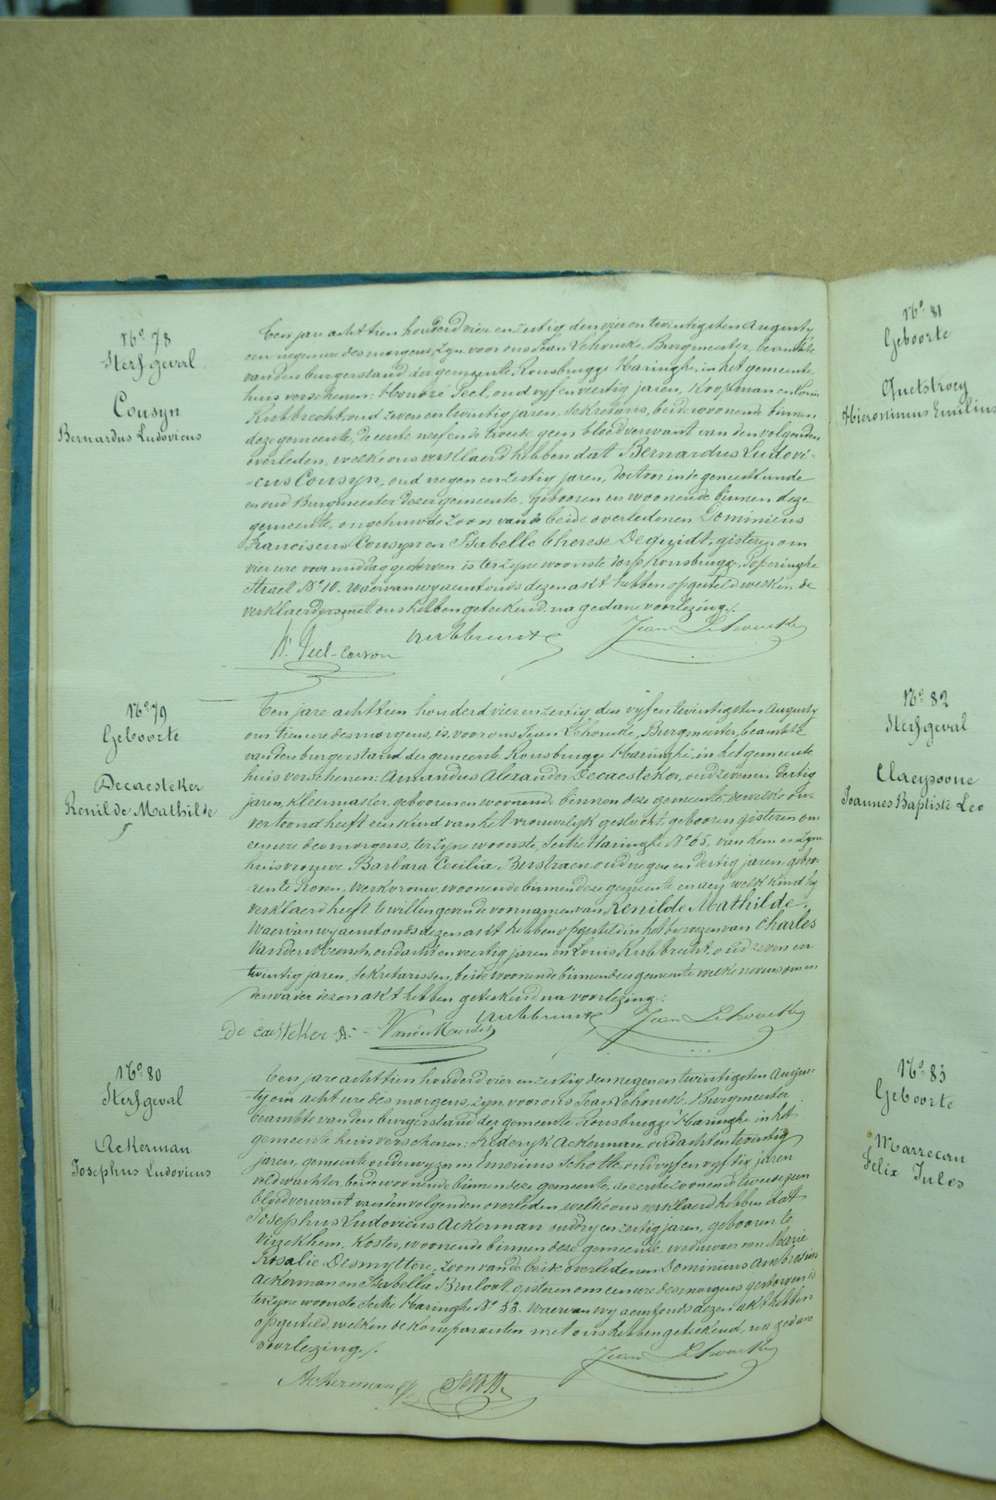 N.º 78
Sterfgeval
Cousyn
Bernardus Ludovicus
Ten jare achttien honderd vier en zestig den vier en twintigsten Augusty
om negen ure des morgens, zyn voor ons Jean Lehoucke, Burgmeester, beambte
van den burgerstand der gemeente Rousbrugge Haringhe, in het gemeente
huis verschenen: Honoré Peel, oud vyf en veertig jaren, koopman en Louis
Rubbrecht oud zeven en twintig jaren, sekretaris, beide woonende binnen
deze gemeente, de eerste neef en de tweede geen bloedverwant van den volgenden
overleden, welke ons verklaerd hebben dat Bernardus Ludovi-
-cus Cousyn, oud negen en zestig jaren, doctoor in de geneeskunde
en oud Burgmeester dezer gemeente, gebooren en woonende binnen deze
gemeente, ongehuwde zoon van de beide overledenen Dominicus
Franciscus Cousyn en Isabelle Therese Dequidt, gisteren om
vier ure voormiddag gestorven is ter zyne woonste dorp Rousbrugge, Poperinghe
straet N.º 10. Waervan wy aenstonds dezen akt hebben opgesteld welken de
verklaerders met ons hebben geteekend na gedane voorlezing./.
H. Peel-Cousyn Rubbrecht Jean Lehoucke
N.º 79
Geboorte
Decaesteker
Renilde Mathilde
Ten jare achttien honderd vier en zestig den vyf en twintigsten Augusty
om tien ure des morgens, is voor ons Jean Lehoucke, Burgmeester, beambte
van den burgerstand der gemeente Rousbrugge Haringhe, in het gemeente
huis verschenen: Amandus Alexander Decaesteker, oud zeven en dertig
jaren, kleermaker, gebooren en woonende binnen deze gemeente, dewelke ons
vertoond heeft een kind van het vrouwelyk geslacht, gebooren gisteren om
een ure des morgens, ter zyne woonste, Sectie Haringhe N.º 65, van hem en zyne
huisvrouwe Barbara Cecilia Verstraen, oud negen en dertig jaren, gebo-
ren te Roxem, werkvrouw, woonende binnen deze gemeente en aen welk kind hy
verklaerd heeft te willen geven de voornamen van Renilde Mathilde.
Waervan wy aenstonds dezen akt hebben opgesteld in het bywezen van Charles
Vandermeersch, oud acht en veertig jaren en Louis Rubbrecht, oud zeven en
twintig jaren, sekretarissen, beide woonende binnen deze gemeente welke nevens ons en
den vader dezen akt hebben geteekend na voorlezing./.
De Caesteker A. Vandermeersch Rubbrecht Jean Lehoucke
N.º 80
Sterfgeval
Ackerman
Josephus Ludovicus
Ten jare achttien honderd vier en zestig den negen en twintigsten Augus-
-ty om acht ure des morgens, zyn voor ons Jean Lehoucke, Burgmeester
beambte van den burgerstand der gemeente Rousbrugge Haringhe in het
gemeente huis verschenen: Frederyk Ackerman oud acht en twintig
jaren, gemeente onderwyzer en Emerinus Schotte oud vyf en vyftig jaren
veldwachter, beide woonende binnen deze gemeente, de eerste zoon en de tweede geen
bloedverwant van den volgenden overleden, welke ons verklaerd hebben dat
Josephus Ludovicus Ackerman oud dry en zestig jaren, gebooren te
Vinckhem, koster, woonende binnen deze gemeente, weduwaer van Marie
Rosalie Desmyttere, zoon van de beide overledenen Dominicus Ambrosius
Ackerman en Isabella Bruloot, gisteren om een ure des morgens gestorven is
ter zyne woonste Sectie Haringhe N.º 33. Waervan wy aenstonds dezen akt hebben
opgesteld welken de komparanten met ons hebben geteekend, na gedane
voorlezing./.
Ackerman F. Schotte Jean Lehoucke
N.º 81
Geboorte
Quetstroey
Hieronimus Emilius
N.º 82
Sterfgeval
Claeysoone
Joannes Baptiste Leo
N.º 83
Geboorte
Marrecau
Felix Jules